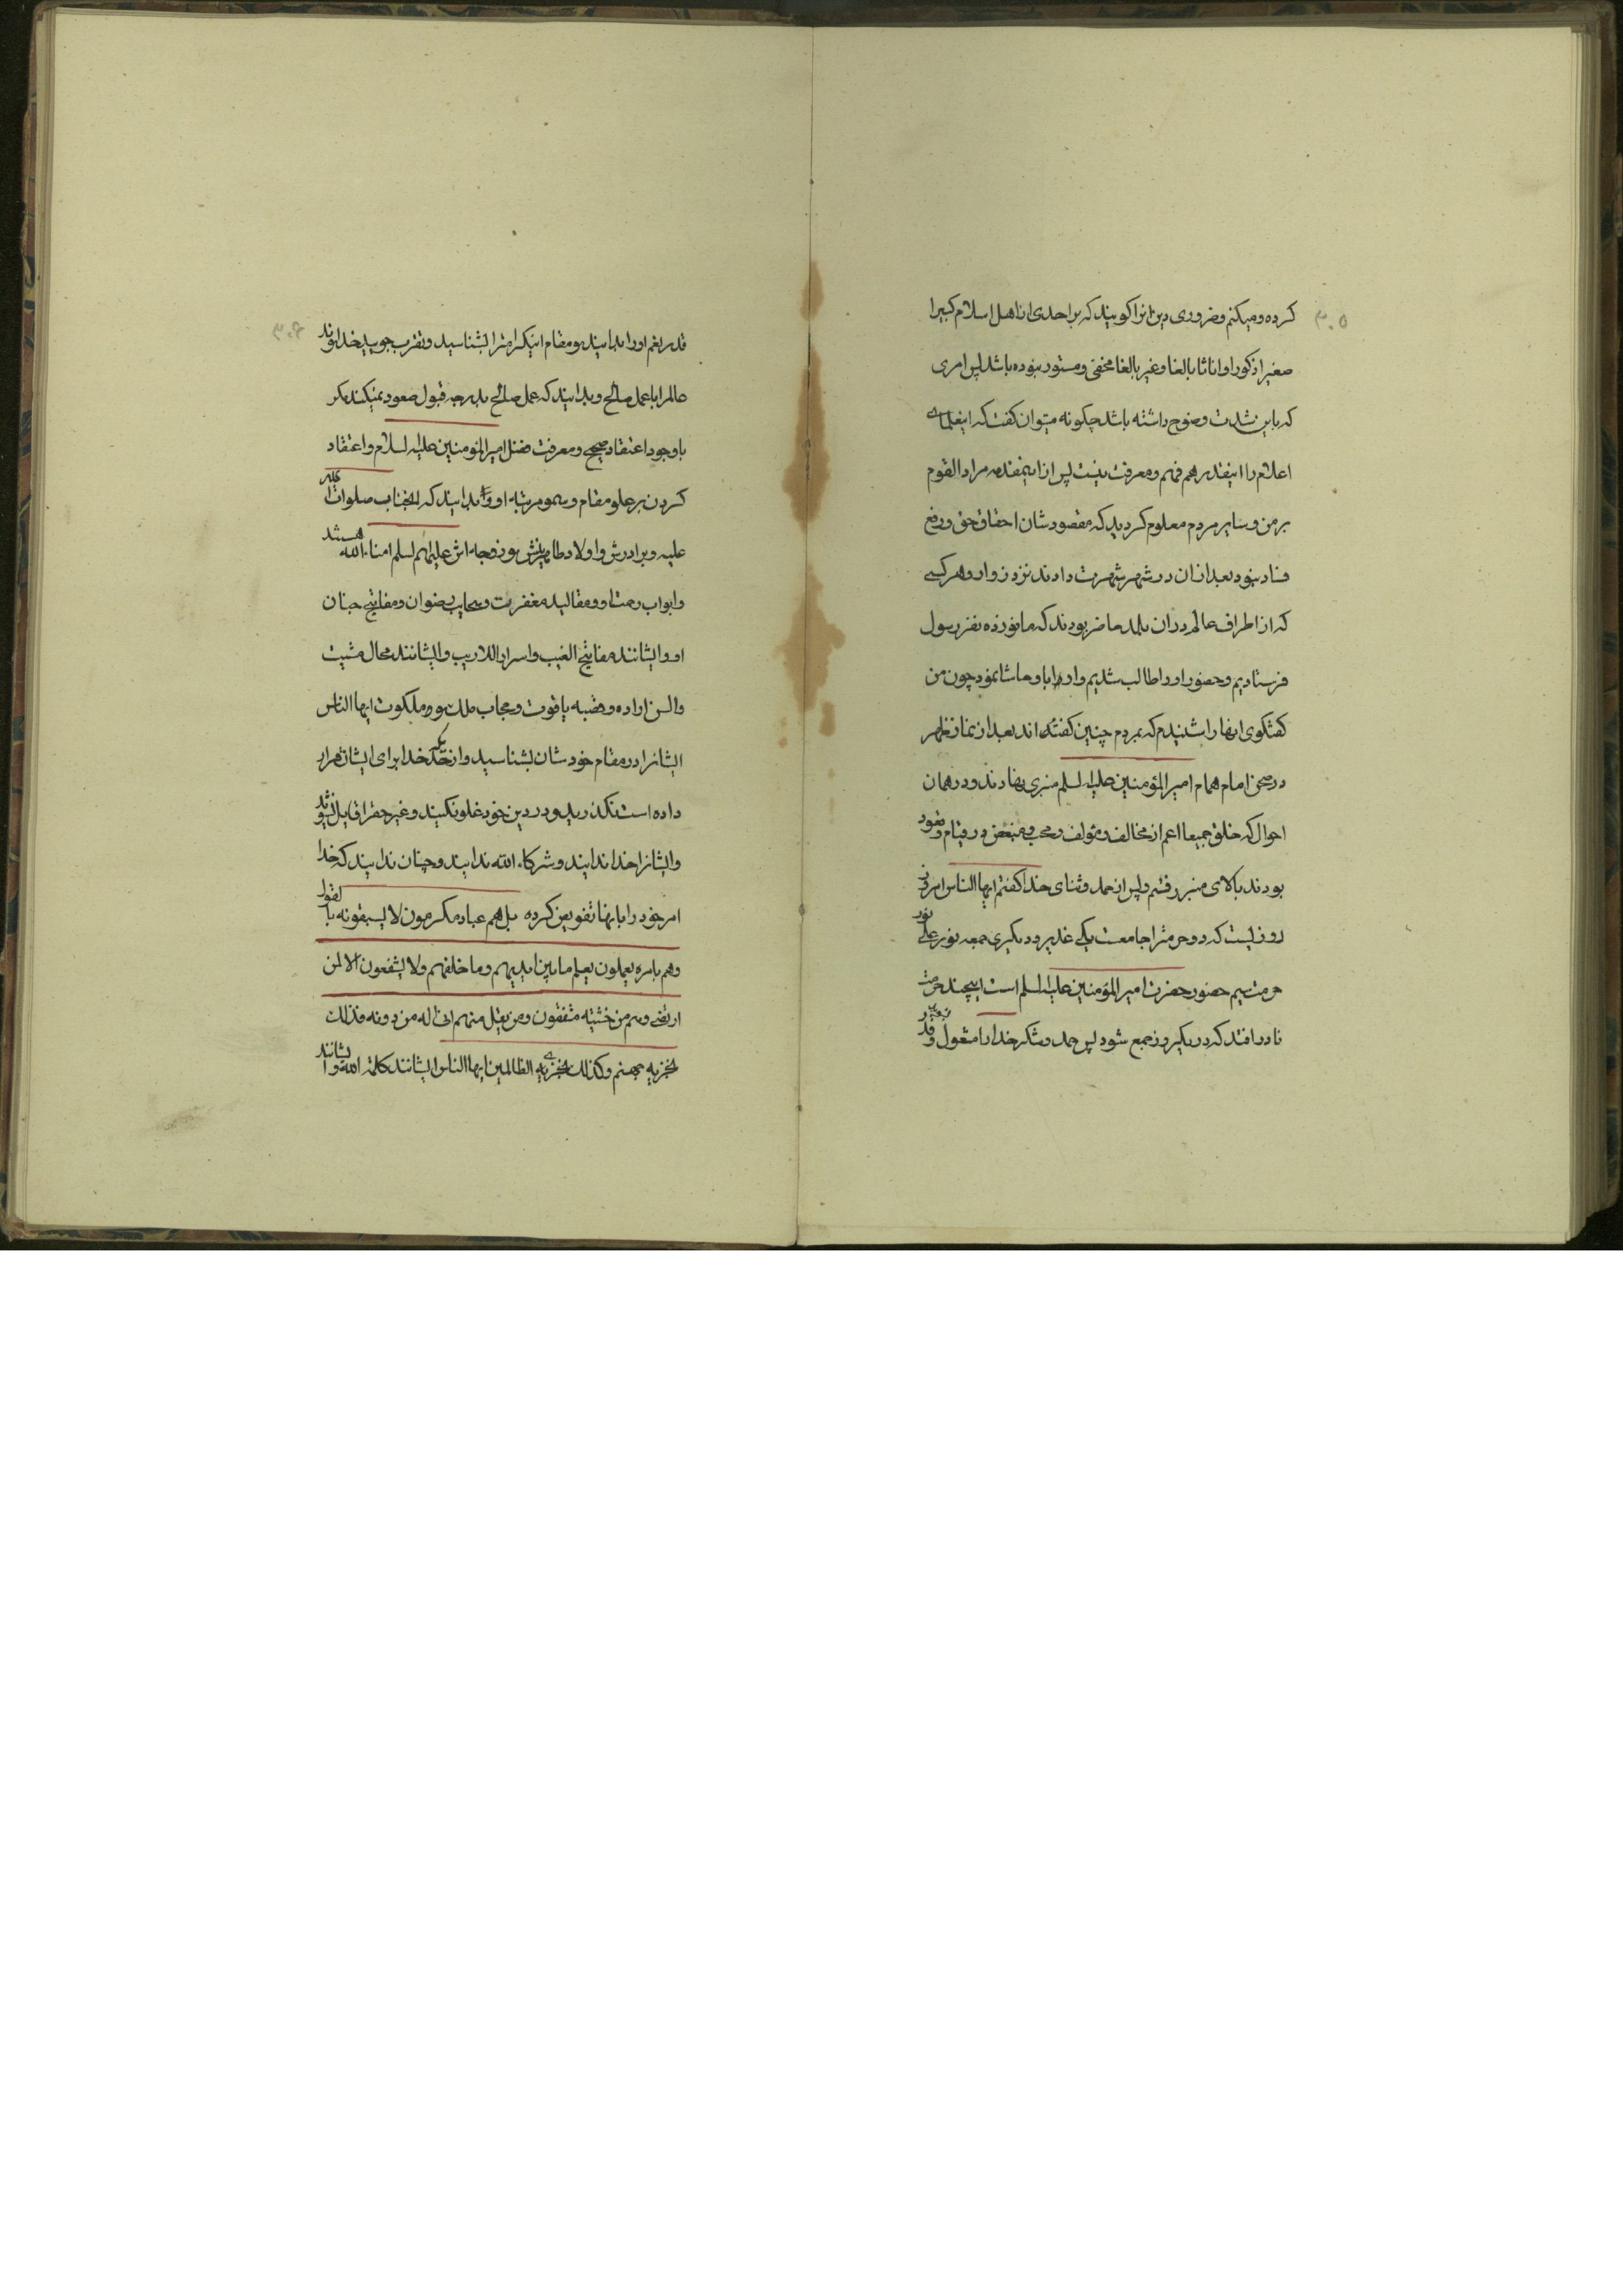 ۳۰۵
کرده و میکنم و ضروری دین انرا کویند که بر احدی از اهل اسلام کبیرا
صغیرا ذکورا و اناثا بالغا و غیر بالغا مخفی و مستور نبوده باشد پس امری
که باین شدت وضوح داشته باشد چکونه میتوان کفت که اینعلمای
اعلام را اینقدر هم فهم و معرفت نیست پس از اینمقدمه مراد القوم
بر من و سایر مردم معلوم کردید که مقصودشان احقاق حق و رفع
فساد نبود بعد از ان در شهر شهرت دادند نزد زوار و هر کسی
که از اطراف عالم در ان بلد حاضر بودند که ما نوزده نفر رسول
فرستادیم و حضور او را طالب شدیم و او ابا و حاشا نمود چون من
کفتکوی انها را شنیدم که بمردم چنین کفته اند بعد از نماز ظهر
در صحن امام همام امیر المؤمنین علیه السلم منبری نهادند و در همان
احوال که خلق جمیعا اعم از مخالف و مؤلف و محب و مبغض در قیام و قعود
بودند بالای منبر رفتم و پس از حمد و ثنای خدا کفتم ایها الناس امروز
روزیست که دو حرمترا جامعست یکی غدیر و دیکری جمعه نور علی نور
حرمت سیم حضور حضرت امیر المؤمنین علیه السلم است اینچند حرمت
نادر افتد که در یکروز جمع شود پس حمد و شکر خدا را مشغول
۳۰۶
قدر نعم او را بدانید و مقام اینکرامترا بشناسید و تقرب جویید خداوند
عالمرا با عمل صالح و بدانید که عمل صالح بدرجه قبول صعود نمیکند مکر
با وجود اعتقاد صحیح و معرفت فضل امیر المؤمنین علیه السلام و اعتقاد
کردن بر علو مقام و سمو مرتبه او و بدانید که انجناب صلوات الله
علیه و برادرش و اولاد طاهرینش و زوجه اش علیهم السلم امناء الله هستند
و ابواب رحمت او و مقالید مغفرت و سحایب رضوان و مفاتیح جنان
او و ایشانند مفاتیح الغیب و اسرار اللاریب و ایشانند محال مشیت
و السن اراده و قصبه یاقوت و حجاب ملک و ملکوت ایها الناس
ایشانرا در مقام خودشان بشناسید و از حدیکه خدا برای ایشان قرار
داده است نکذرید و در دین خود غلو نکنید و غیر حقرا قایل نشوید
و ایشانرا خدا ندانید و شرکاء الله ندانید و چنان ندانید که خدا
امر خود را بانها تفویض کرده بل هم عباد مکرمون لا یسبقونه بالقول
وهم بامره یعملون یعلم ما بین ایدیهم و ما خلفهم ولا یشفعون الا لمن
ارتضی وهم من خشیته مشفقون ومن یقل منهم انی اله من دونه فذلک
نجزیه جهنم وکذلک نجزی الظالمین ایها الناس ایشانند کلمة الله و ایشانند